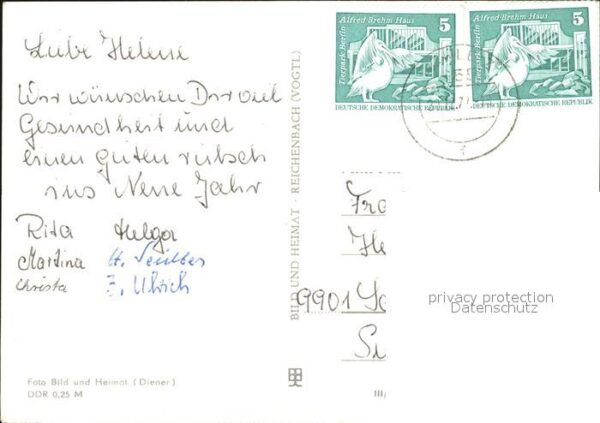 Liebe Helene
Wir wünschen Dir viel
Gesundheit und
einen guten rutsch
ins Neue Jahr
Rita Helga
Martina H.
Christa Z. Ulbrich
Foto Bild und Heimat (Diener)
DDR 0,25 M
BILD UND HEIMAT · REICHENBACH (VOGTL)
Alfred Brehm Haus 5
Tierpark Berlin
DEUTSCHE DEMOKRATISCHE REPUBLIK
Alfred Brehm Haus 5
Tierpark Berlin
DEUTSCHE DEMOKRATISCHE REPUBLIK
Fra
He
9901
privacy protection
Datenschutz
III/